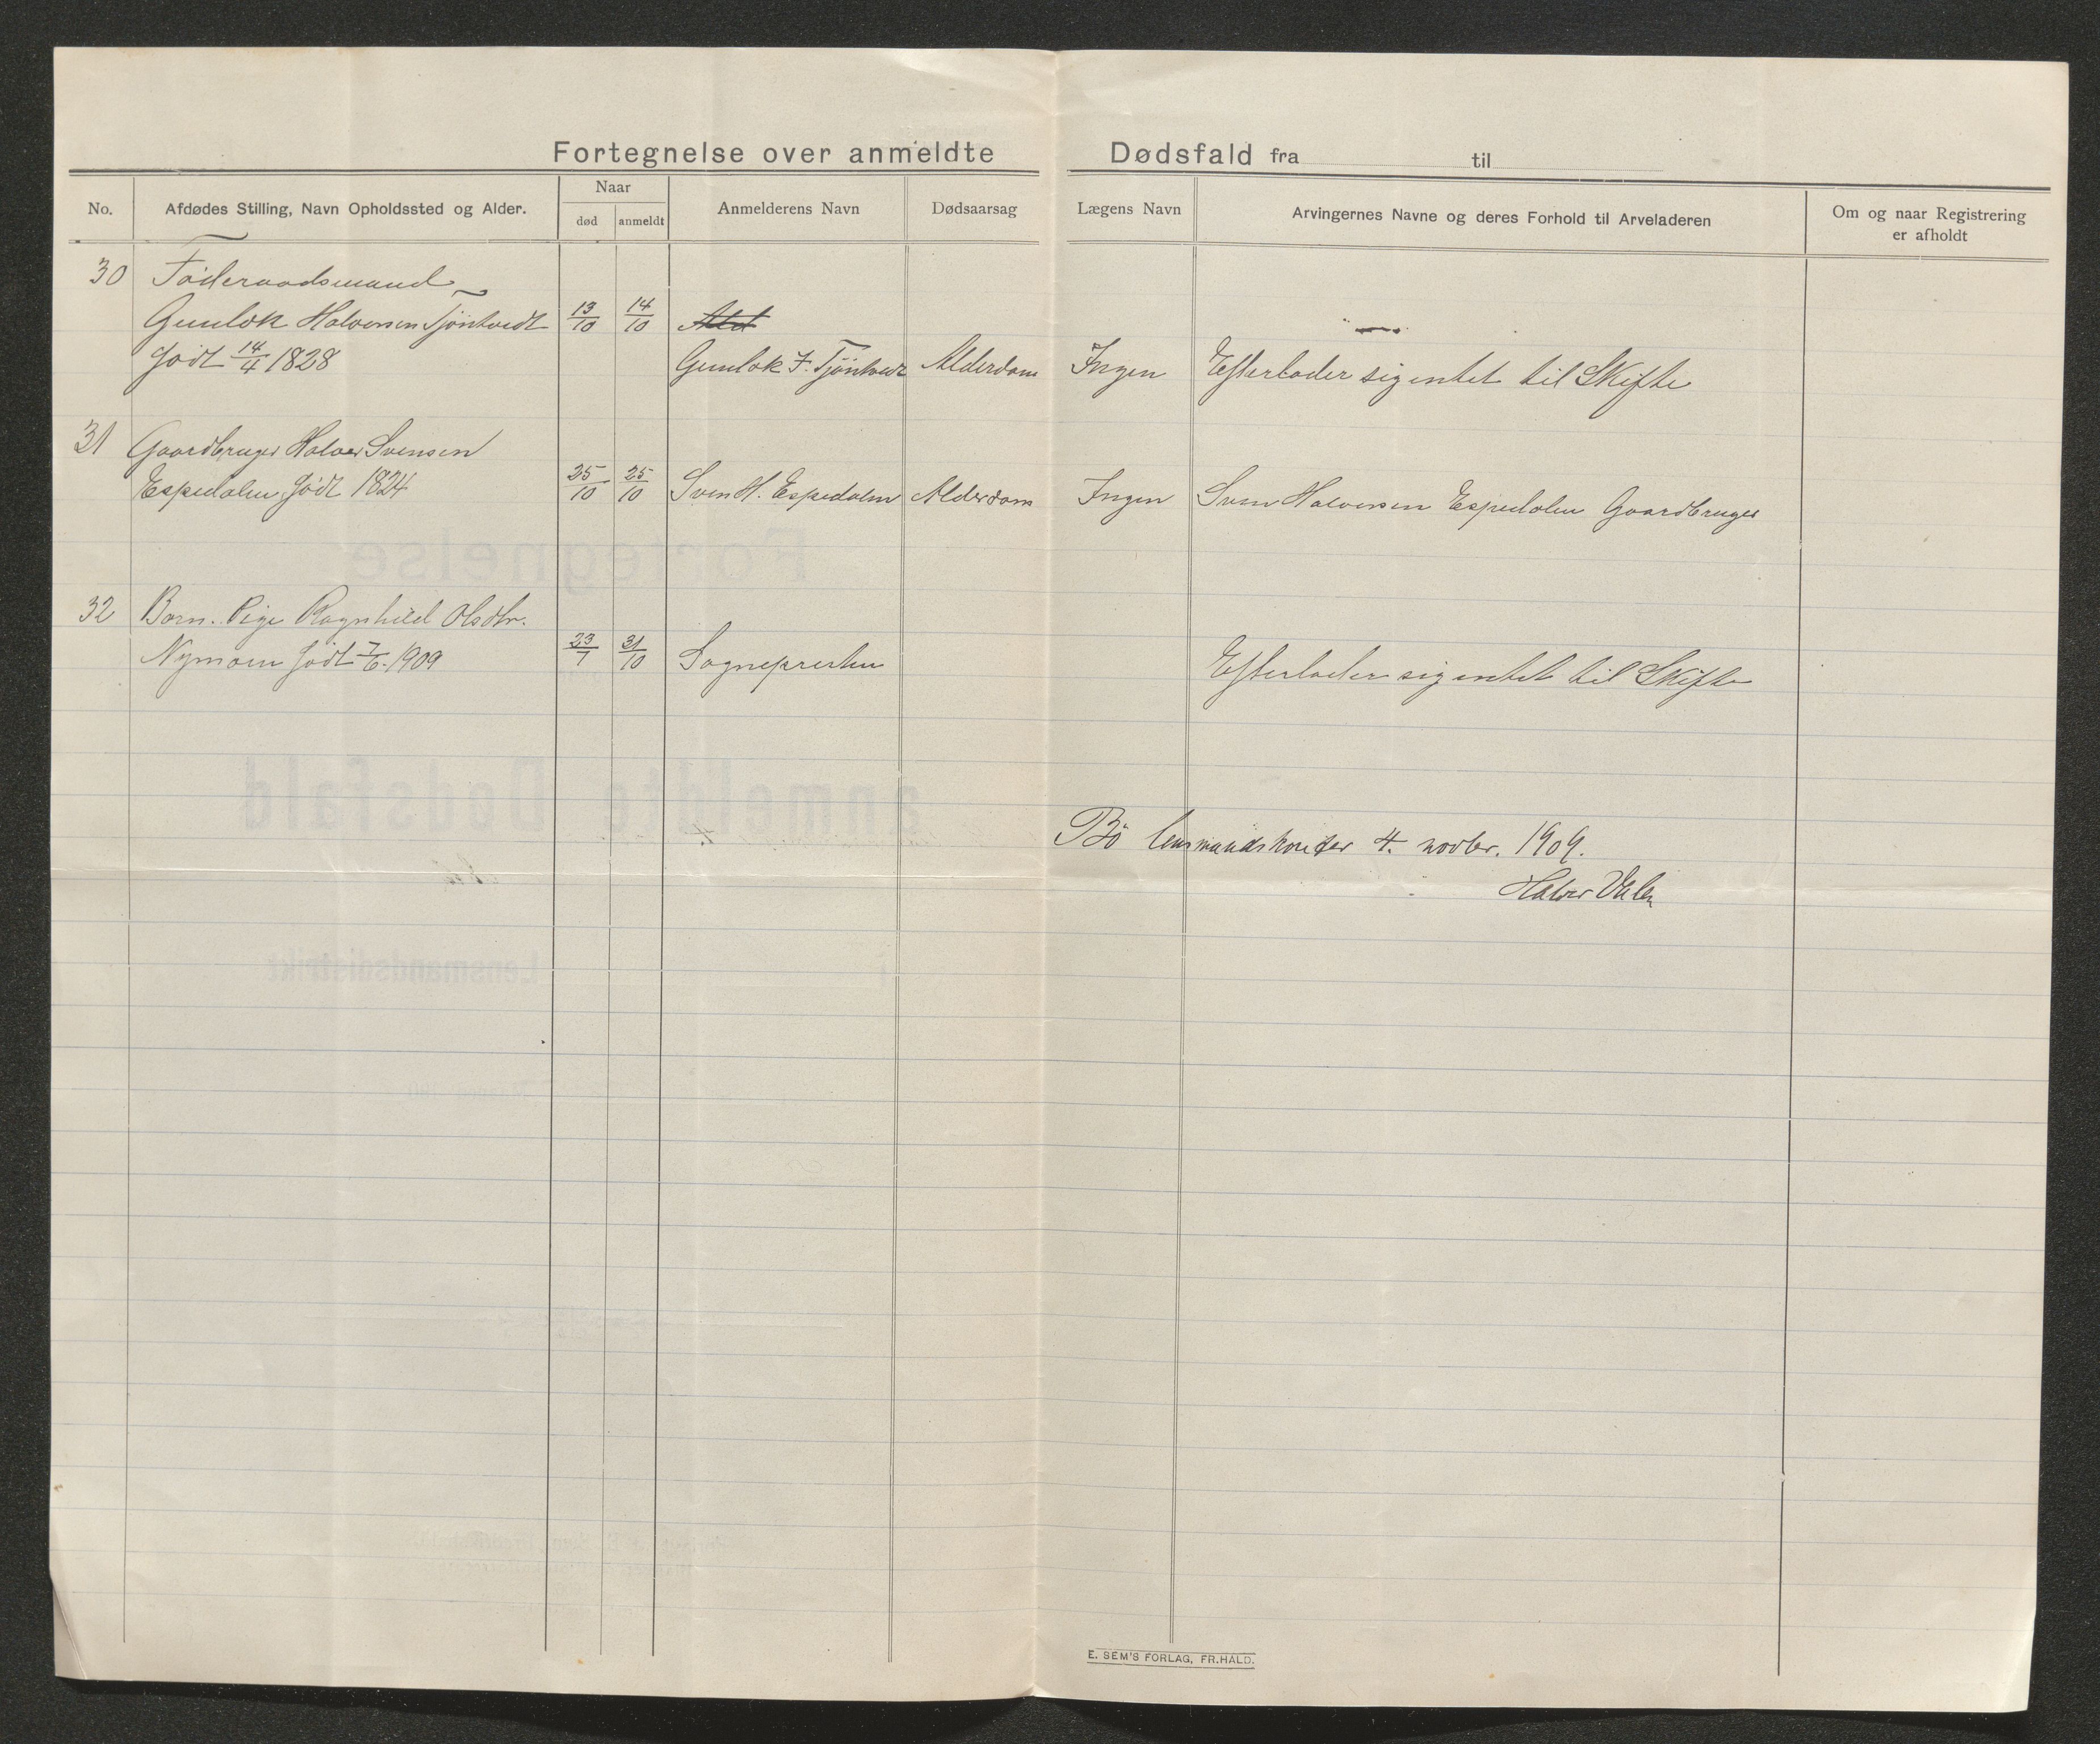 Fortegnelse over anmeldte Dødsfald fra til
No.
Afdødes Stilling, Navn Opholdssted og Alder.
Naar
død
anmeldt
Anmelderens Navn
Dødsaarsag
Lægens Navn
Arvingernes Navne og deres Forhold til Arveladeren
Om og naar Registrering
er afholdt
30 Föderaadsmand
Gunlek Halvorsen Tjöntvedt 13/10 14/10
født 14/4 1828 Gunlek F. Tjöntvedt Alderdom Ingen Efterlader sig intet til Skifte
31 Gaardbruger Halvor Svensen
Espedalen født 1824 25/10 25/10 Sven H. Espedalen Alderdom Ingen Sven Halvorsen Espedalen Gaardbruger
32 Barn. Pige Ragnhild Olsdtr.
Nymoen født 7/6. 1909 23/7 31/10 Sognepresten Efterlader sig intet til Skifte
Bö lensmandskontor 4. novbr. 1909.
Halvor Valen
E. SEM'S FORLAG, FR.HALD.
Fortegnelse
anmeldte Dødsfald
i Lensmandsdistrikt